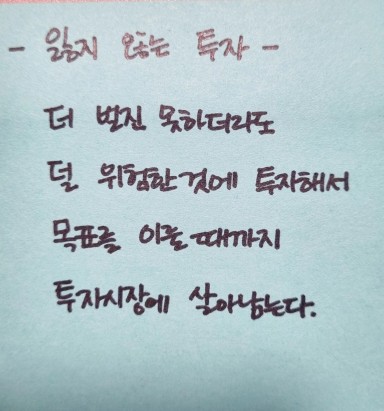 - 잃지 않는 투자 -
더 벌진 못하더라도
덜 위험한것에 투자해서
목표를 이룰때까지
투자시장에 살아남는다.